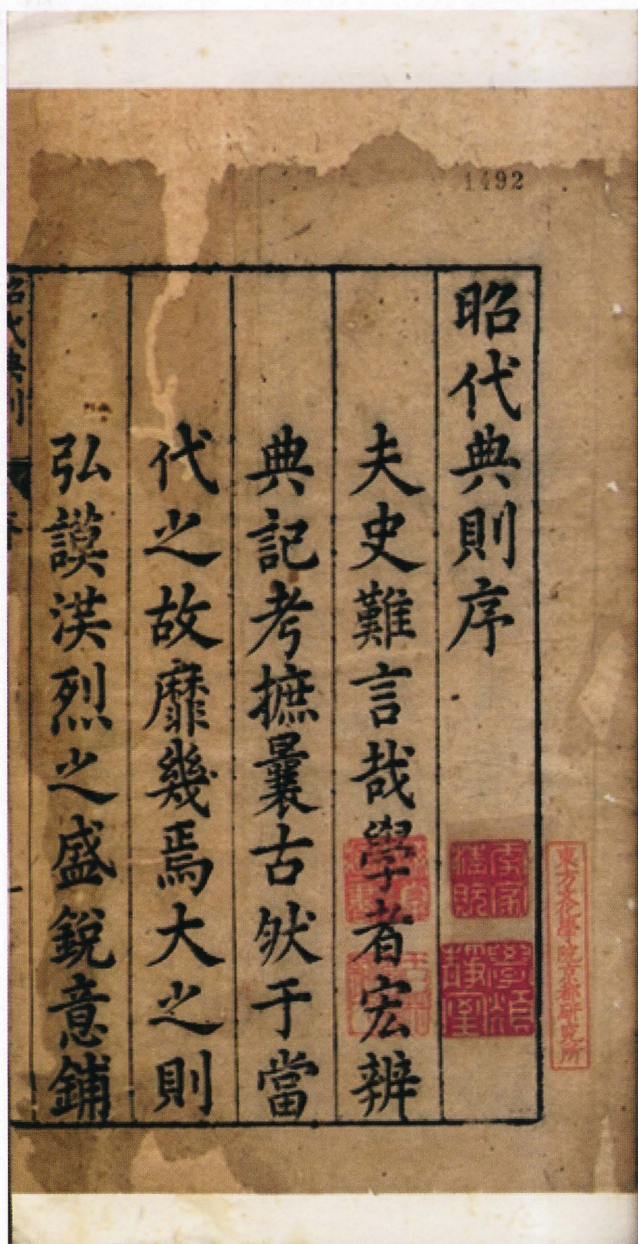 1492
昭代典則序
夫史難言哉學者宏辨
典記考摭曩古然于當
代之故靡幾焉大之則
弘謨渶烈之盛銳意鋪
昭代典則
東方文化學院京都研究所